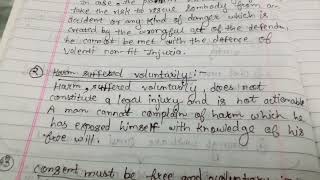 take the risk to rescue somebody from an
accident or any kind of danger which is
created by the wrongful act of the defenda
he cannot be met with the defence of
volenti non-fit Injuria.
2) Harm suffered voluntarily :-
Harm, suffered voluntarily, does not
constitute a legal injury and is not actionable
A man cannot complain of harm which he
has exposed himself with knowledge of his
free will.
3) consent must be free and voluntary